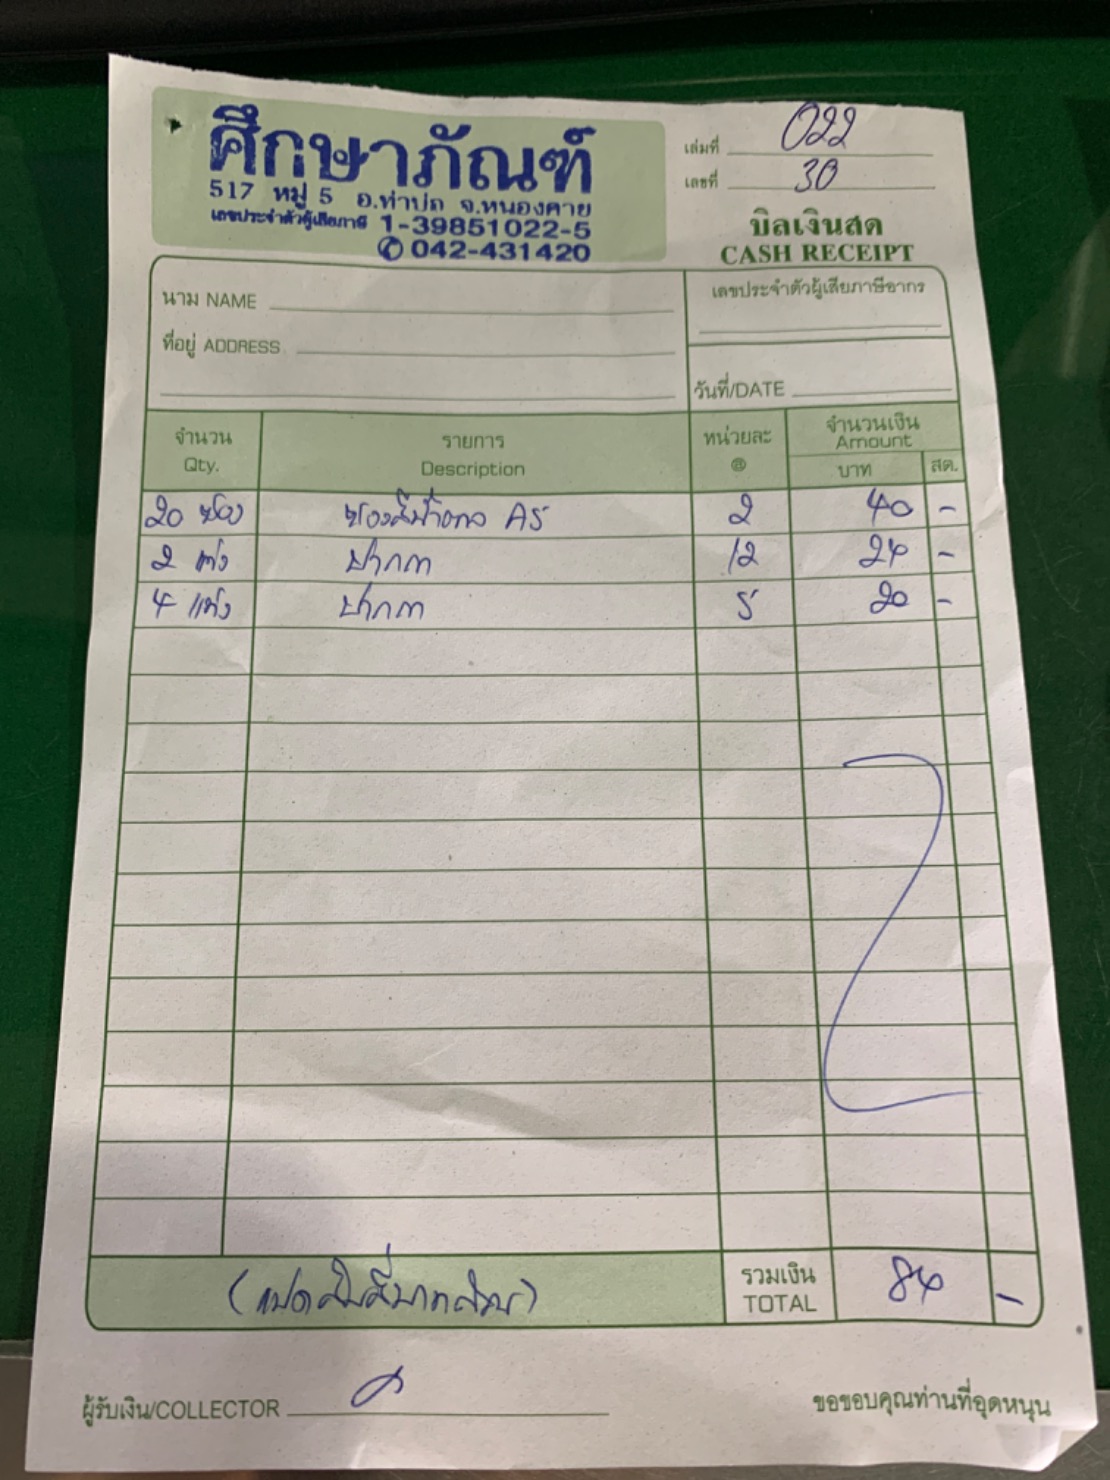 ศึกษาภัณฑ์
517 หมู่ 5 อ.ท่าบ่อ จ.หนองคาย
เลขประจำตัวผู้เสียภาษี 1-39851022-5
✆ 042-431420
เล่มที่ 022
เลขที่ 30
บิลเงินสด
CASH RECEIPT
นาม NAME
ที่อยู่ ADDRESS
เลขประจำตัวผู้เสียภาษีอากร
วันที่/DATE
จำนวน รายการ หน่วยละ จำนวนเงิน
Qty. Description @ Amount
บาท สต.
20 ซอง ซองสีน้ำตาล A5 2 40 -
2 แท่ง ปากกา 12 24 -
4 แท่ง ปากกา 5 20 -
(แปดสิบสี่บาทถ้วน) รวมเงิน 84 -
TOTAL
ผู้รับเงิน/COLLECTOR
ขอขอบคุณท่านที่อุดหนุน